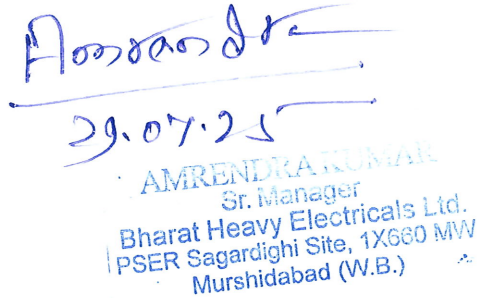 29.07.25
AMRENDRA KUMAR
Sr. Manager
Bharat Heavy Electricals Ltd.
PSER Sagardighi Site, 1X660 MW
Murshidabad (W.B.)